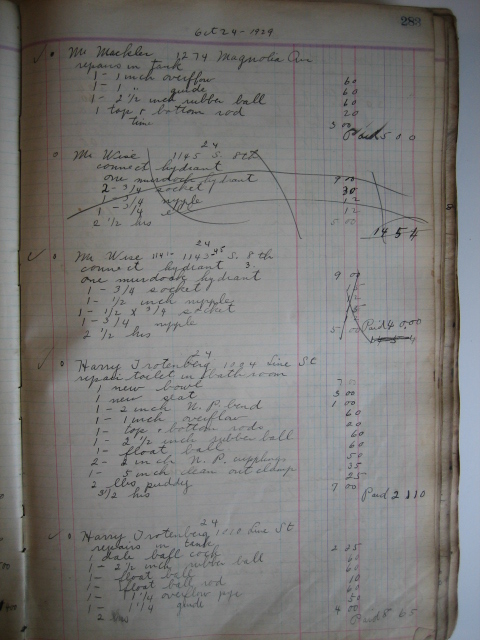 288
Oct 24 - 1929
Mr Mackler 1274 Magnolia Av
repairs in tank
1 - 1 inch overflow 60
1 - 1 " guide 60
1 - 2 1/2 inch rubber ball 60
1 top + bottom rod 20
time 3 00
Paid 5 00
24
Mr Wise 1145 S. 8th
connect hydrant
one murdock hydrant 9 00
2 - 3/4 socket 30
1 - 3/4 nipple 12
1 - 3/4 12
2 1/2 hrs 5 00
14 54
24
Mr Wise 1145 S. 8th
connect hydrant
one murdock hydrant 9 00
1 - 3/4 socket
1 - 1/2 inch nipple
1 - 1/2 x 3/4 socket
1 - 3/4 nipple
2 1/2 hrs 5 00
Paid
24
Harry Trotenberg 1024 Line St
repair toilet in bathroom
1 new bowl 7
1 new seat 3 00
1 - 2 inch N. P. bend 1 00
1 - 1 inch overflow 60
1 - top + bottom rods 20
1 - 2 1/2 inch rubber ball 60
1 - float ball 60
2 - 2 inch N. P. cupplings 50
1 - 5 inch clean out clamp 35
2 lbs puddy 25
3 1/2 hrs 7 00
Paid 21 10
24
Harry Trotenberg Line St
repairs in tank
1 ball cock 2 25
1 - 2 1/2 inch rubber ball 60
1 - float ball 60
1 - float ball rod 10
1 - 1 1/4 overflow pipe
1 - 1 1/4 guide 50
2 hrs 4 00
Paid 65